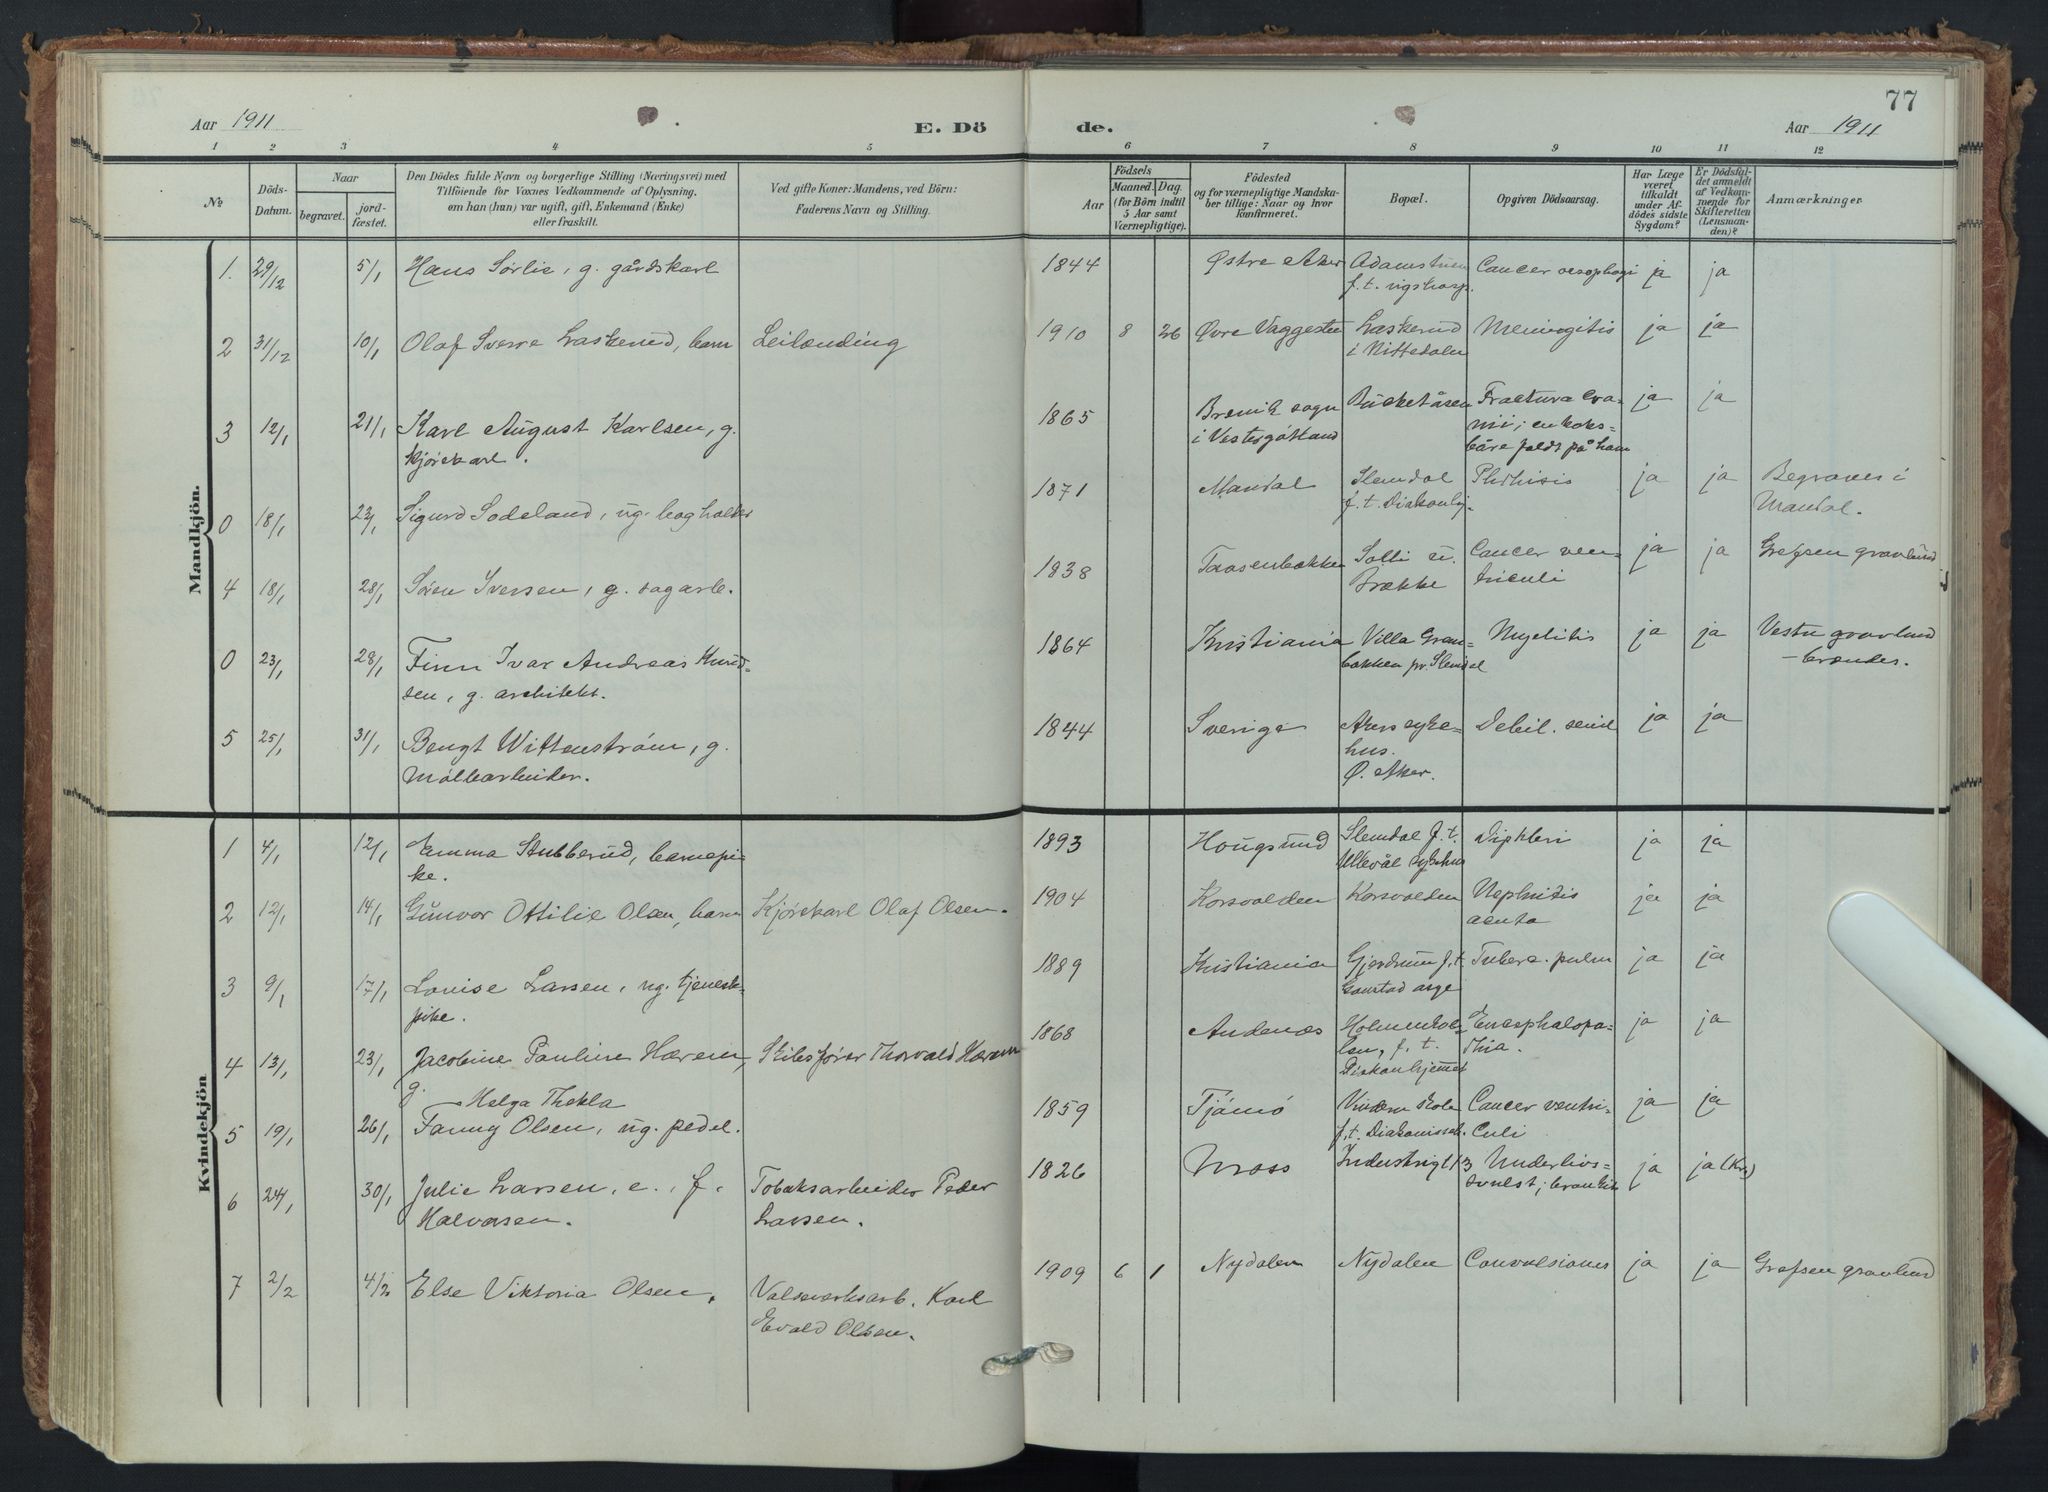 77
Aar 1911
E. Dö
de.
Aar 1911
1 2 3 4 5 6 7 8 9 10 11 12
№
Döds-
Datum.
Naar
begravet.
jord-
fæstet.
Den Dödes fulde Navn og borgerlige Stilling (Næringsvei) med
Tilföiende for Voxnes Vedkommende af Oplysning,
om han (hun) var ugift, gift, Enkemand (Enke)
eller fraskilt.
Ved gifte Koner: Mandens, ved Börn:
Faderens Navn og Stilling.
Födsels
Aar
Maaned. Dag.
(for Börn indtil
5 Aar samt
Værnepligtige).
Födested
og for værnepligtige Mandska-
ber tillige: Naar og hvor
konfirmeret.
Bopæl.
Opgiven Dödsaarsag.
Har Læge
været
tilkaldt
under Af-
dödes sidste
Sygdom?
Er Dödsfal-
det anmeldt
af Vedkom-
mende for
Skifteretten
(Lensman-
den)?
Anmærkninger
Mandkjön.
1. 29/12 5/1 Hans Sørlie, g. gårdskarl 1844 Østre Aker Adamstuen Cancer oesophagi ja ja
f. t. rigshosp.
2 31/12 10/1 Olaf Sverre Laskerud, barn Leilænding 1910 8 26 Øvre Vaggesten Laskerud Meningitis ja ja
i Nittedalen
3 12/1 21/1 Karl August Karlsen, g. 1865 sogn Bucketåsen Fractura cra- ja ja
kjørekarl. i Vestergötland nii; en koks-
båre faldt på ham
0 18/1 23/1 Sigurd Sodeland, ug. bogholder 1871 Mandal Slemdal Phthisis ja ja Begraves i
f. t. Diakonhj. Mandal.
4 18/1 28/1 Søren Iversen, g. sagarb. 1838 Taasenbakken Solli u. Cancer ven- ja ja Grefsen gravlund
Brække triculi
0 23/1 28/1 Finn Ivar Andreas Knud- 1864 Kristiania Villa Gran- Myelitis ja ja Vestre gravlund
sen, g. architekt. bakken pr. Slemdal - brændes.
5 25/1 31/1 Bengt Wittenström, g. 1844 Sverige Akers syke- Debil. senil ja ja
Møllearbeider. hus.
Ø. Aker.
Kvindekjön
1 4/1 12/1 Emma Stubberud, barnepi- 1893 Hougsund Slemdal f. t. Diphteri ja ja
ke. Ullevål sykehus
2 12/1 14/1 Gunvor Ottilie Olsen, barn Kjørekarl Olaf Olsen. 1904 Korsvolden Korsvolden Nephritis ja ja
acuta
3 9/1 17/1 Louise Larsen, ug. tjeneste- 1889 Kristiania Gjerdrum f. t. Tuberc. pulm ja ja
pike. Gaustad asyl
4 13/1 23/1 Jacobine Pauline Hærem, Skibsfører Thorvald Hærem 1868 Andenæs Holmenkol- Encephalopa- ja ja
g. len, f. t. thia.
Diakonhjemmet
Helga Thekla
5 19/1 26/1 Fanny Olsen, ug. pedel. 1859 Tjömö Vinderen skole Cancer ventri- ja ja
f. t. Diakonisseh. culi
6 24/1 30/1 Julie Larsen, e., f. Tobaksarbeider Peder 1826 Moss Industrigt 13 Underlivs- ja ja (Kr.)
Halvorsen. Larsen. svulst; bronkit
7 2/2 4/2 Else Viktoria Olsen. Valseverksarb. Karl 1909 6 1 Nydalen Nydalen Convulsiones ja ja Grefsen gravlund
Evald Olsen.